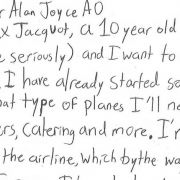 r Alan Joyce AO
x Jacquot, a 10 year old
e seriously) and I want to
, I have already started so
hat type of planes I'll ne
ers, Catering and more. I'm
the airline, which by the wa